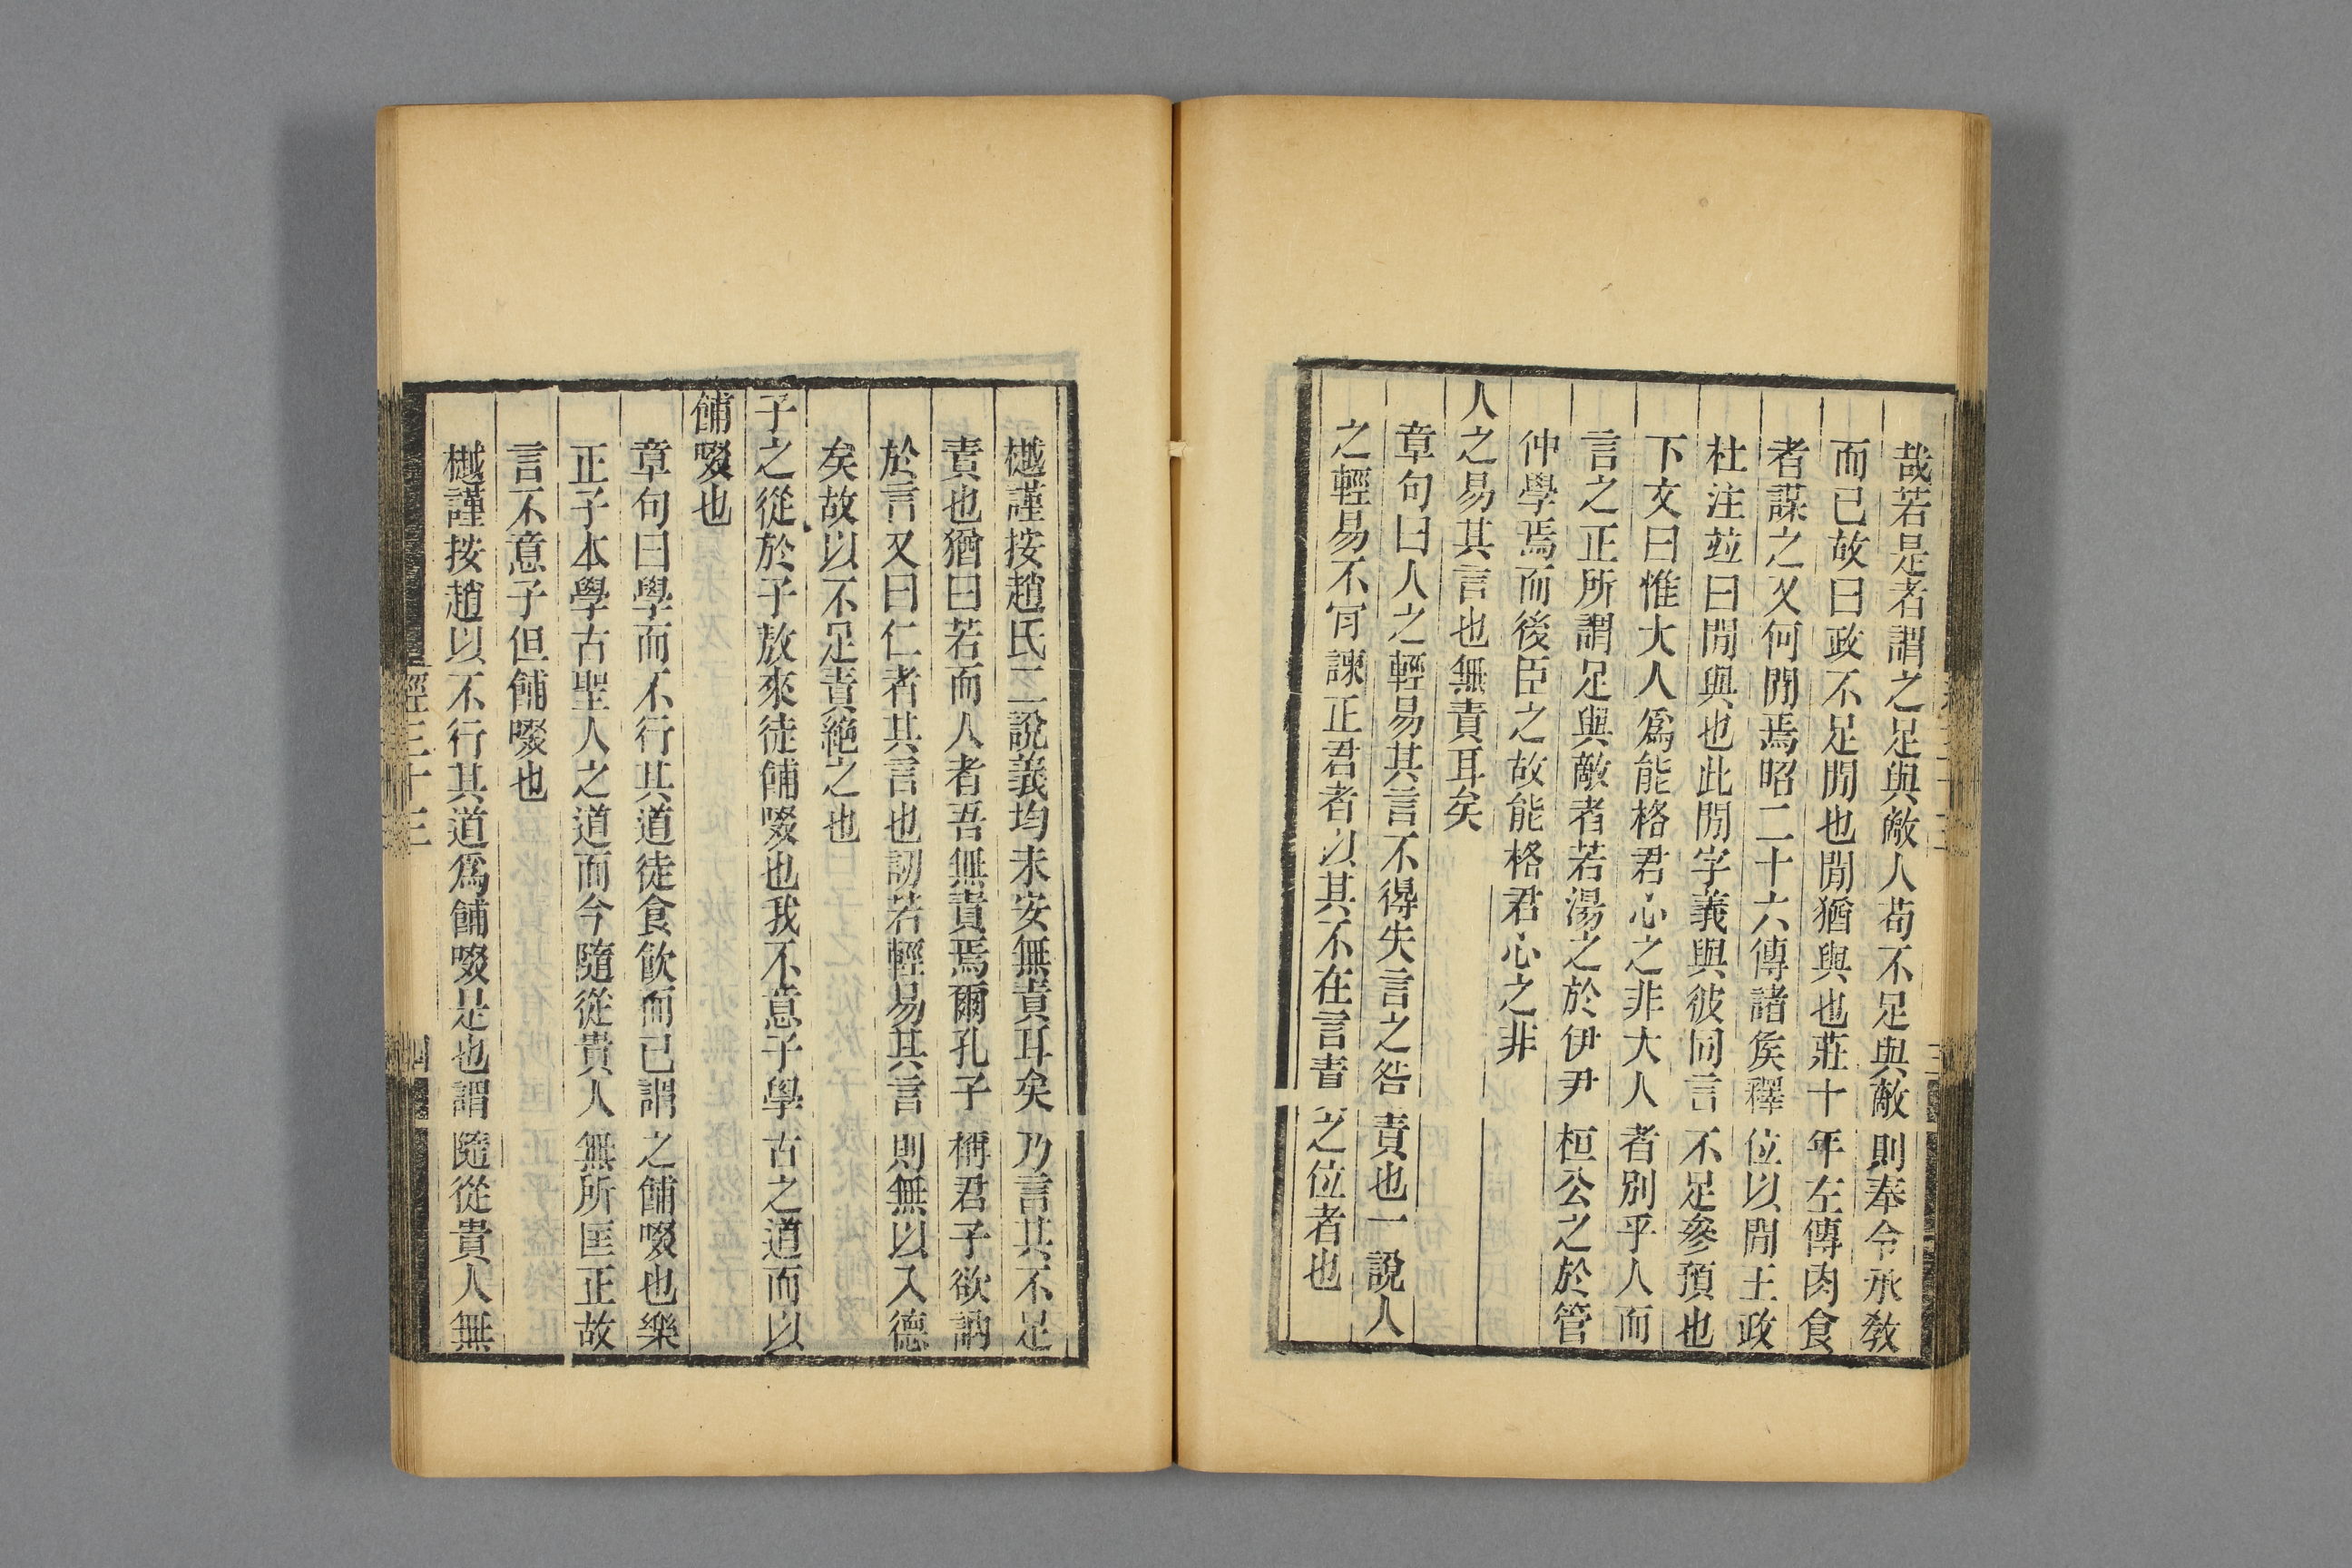 哉若是者謂之足與敵人苟不足與敵則奉令承敎
而已故曰政不足閒也閒猶與也莊十年左傳肉食
者謀之又何閒焉昭二十六傳諸矦釋位以閒王政
杜注竝曰閒與也此閒字義與彼同言不足參預也
下文曰惟大人爲能格君心之非大人者別乎人而
言之正所謂足與敵者若湯之於伊尹桓公之於管
仲學焉而後臣之故能格君心之非
人之易其言也無責耳矣
章句曰人之輕易其言不得失言之咎責也一說人
之輕易不肎諫正君者以其不在言責之位者也
樾謹按趙氏二說義均未安無責耳矣乃言其不足
責也猶曰若而人者吾無責焉爾孔子稱君子欲訥
於言又曰仁者其言也訒若輕易其言則無以入德
矣故以不足責絕之也
子之從於子敖來徒餔啜也我不意子學古之道而以
餔啜也
章句曰學而不行其道徒食飮而已謂之餔啜也樂
正子本學古聖人之道而今隨從貴人無所匡正故
言不意子但餔啜也
樾謹按趙以不行其道爲餔啜是也謂隨從貴人無
經三十三
四